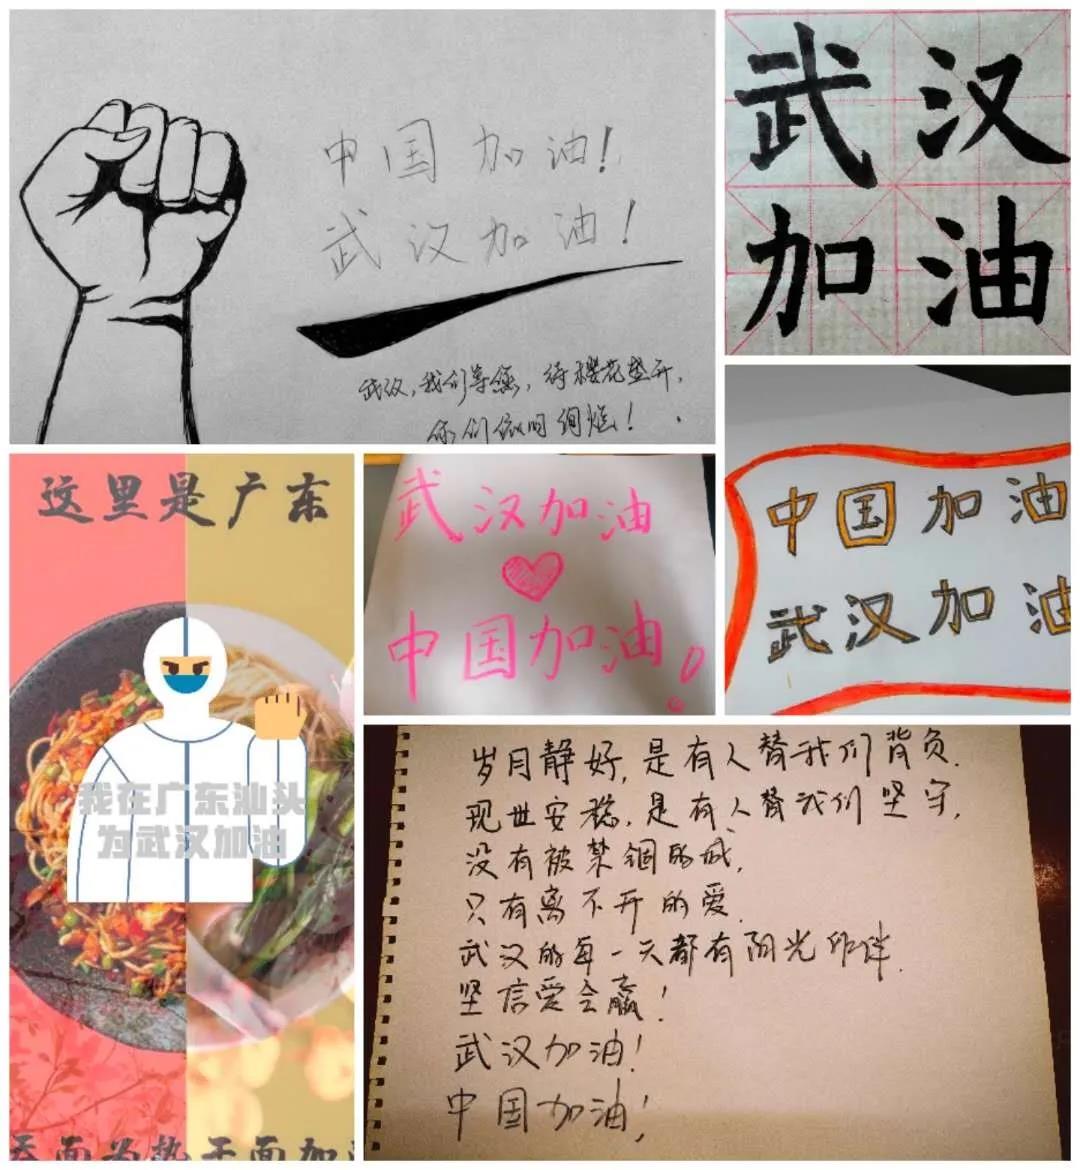 中国加油！
武汉加油！
武汉，我们等您，待樱花盛开，
你们依旧绚烂！
武汉
加油
这里是广东
我在广东汕头
为武汉加油
面为热干面加
武汉加油
中国加油！
中国加油
武汉加油
岁月静好，是有人替我们背负.
现世安稳，是有人替我们坚守，
没有被禁锢的城，
只有离不开的爱.
武汉的每一天都有阳光作伴.
坚信爱会赢！
武汉加油！
中国加油！